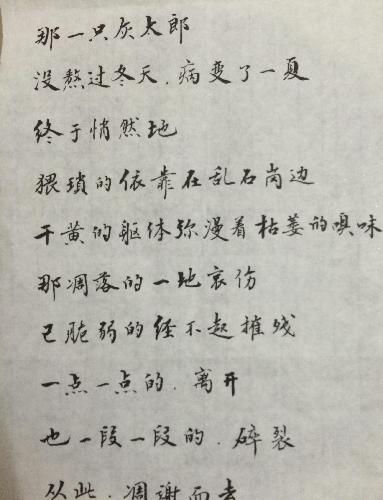 那一只灰太郎
没熬过冬天.病变了一夏
终于悄然地
猥琐的依靠在乱石岗边
干黄的躯体弥漫着枯萎的嗅味
那凋落的一地哀伤
已脆弱的经不起摧残
一点一点的.离开
也一段一段的.碎裂
从此.凋谢而去